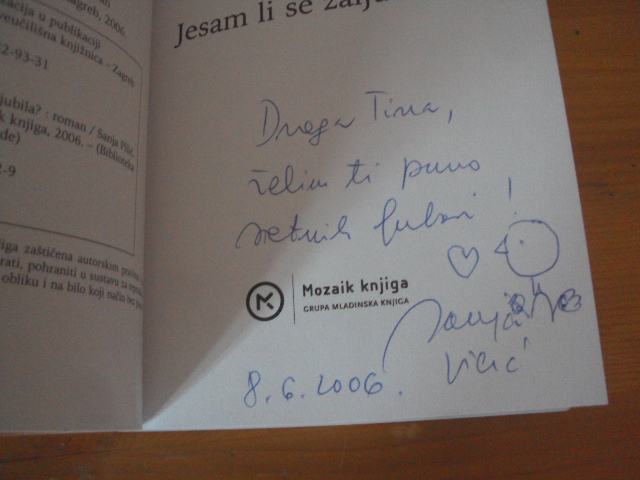 Zagreb, 2006.
zacija u publikaciji
veučilišna knjižnica - Zagreb
2-93-31
jubila? : roman / Sanja Pilić.
k knjiga, 2006. – (Biblioteka
de)
2-9
iga zaštićena autorskim
rati, pohraniti u sustavu za
obliku i na bilo koji način bez
Jesam li se
Draga Tina,
želim ti puno
sretnih ljubavi!
Mozaik knjiga
GRUPA MLADINSKA KNJIGA
Sanja
Pilić
8.6.2006.